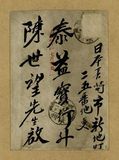 日本長崎市新地町
二五番地交
泰益寶號升
陳世望先生啟